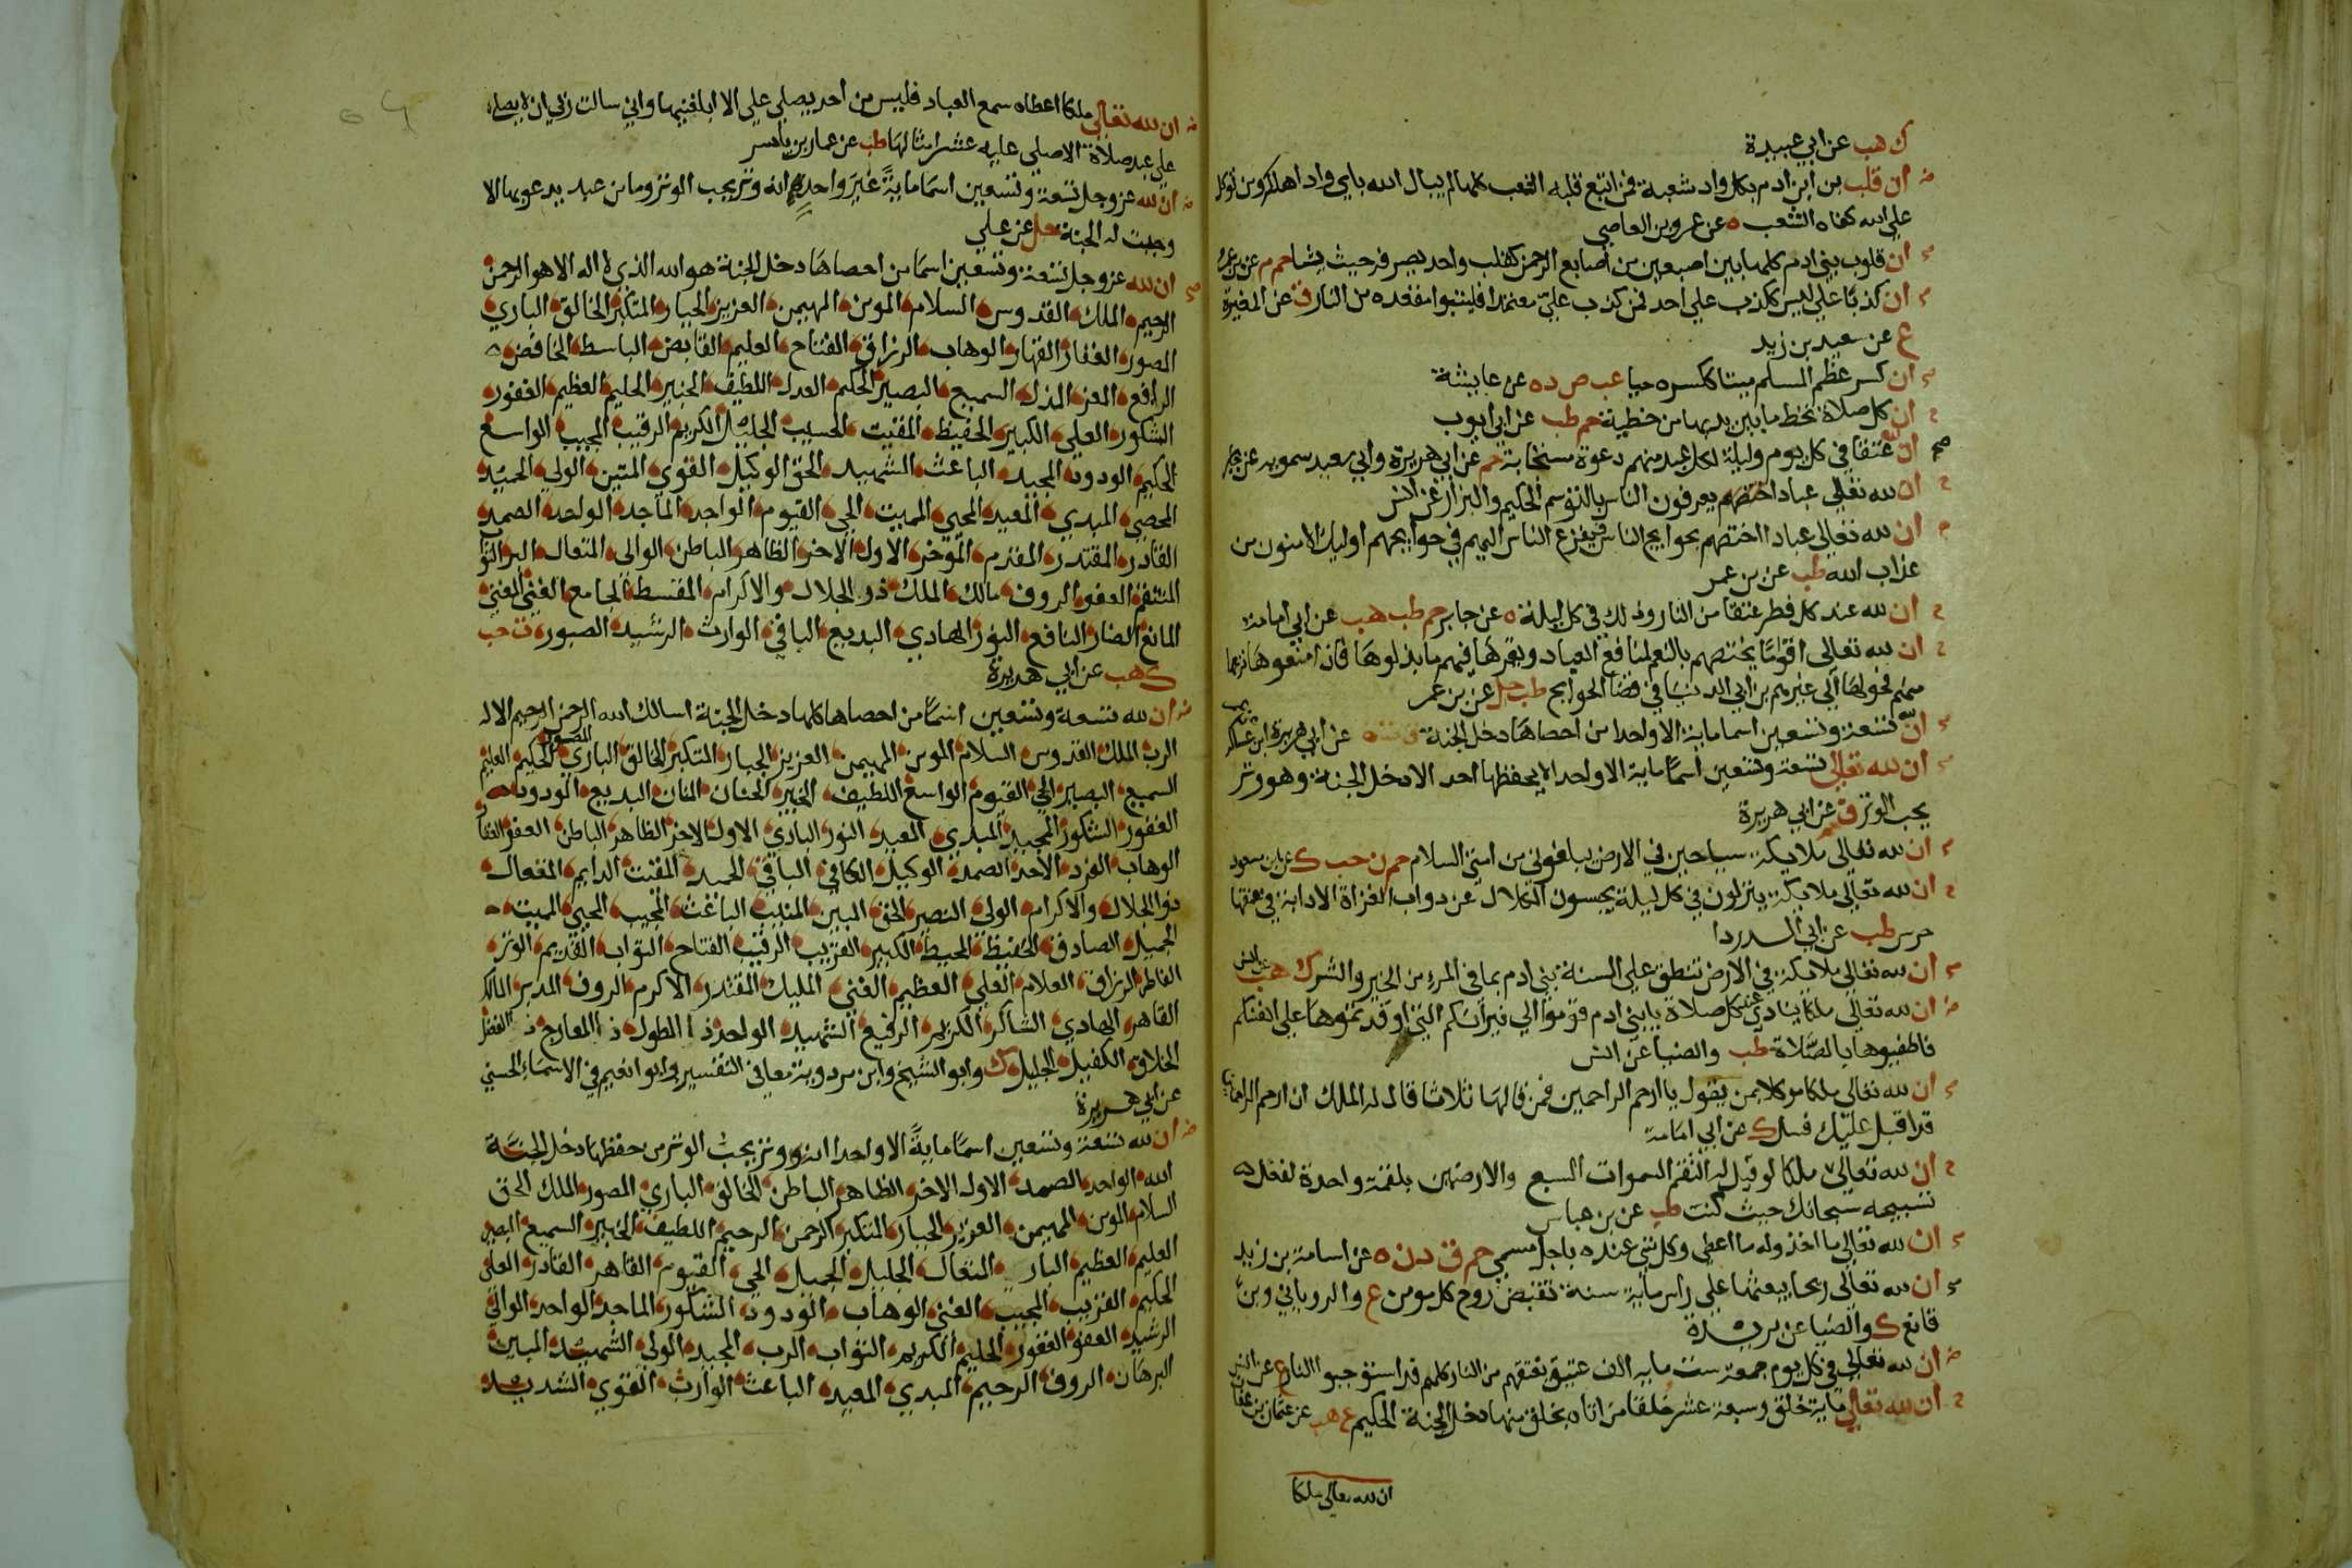 ك هب عن ابي عبيدة
ان قلب بن ادم بكل واد شعبة فمن اتبع قلبه الشعب كلها لم يبال الله باي واد اهلكه ومن توكل
علي الله كفاه الشعب ه عن عمرو بن العاصي
ان قلوب بني ادم كلها بين اصبعين من اصابع الرحمن كقلب واحد يصرفه حيث يشا حم م عن بن عمرو
ان كذبا علي ليس ككذب علي احد فمن كذب علي متعمدا فليتبوا مقعده من النار ق عن المغيرة
ع عن سعيد بن زيد
ان كسر عظم المسلم ميتا ككسره حيا عب ص د ه عن عايشة
ان كل صلاة تحط ما بين يديها من خطية حم طب عن ابي ايوب
ان لله عتقا في كل يوم وليلة لكل عبد منهم دعوة مستجابة حم عن ابي هريرة وابي سعيد سمويه عن جابر
ان لله تعالي عبادا يعرفون الناس بالتوسم الحكيم والبزار عن انس
ان لله تعالي عبادا اختصهم بحوايج الناس يفزع الناس اليهم في حوايجهم اوليك الامنون من
عذاب الله طب عن بن عمر
ان لله عند كل فطر عتقا من النار وذلك في كل ليلة ه عن جابر حم طب هب عن ابي امامة
ان لله تعالي اقواما يختصهم بالنعم لمنافع العباد ويقرها فيهم ما بذلوها فاذا منعوها نزعها
منهم فحولها الي غيرهم بن ابي الدنيا في قضا الحوايج طب حل عن بن عمر
ان لله تسعة وتسعين اسما ماية الا واحدا من احصاها دخل الجنة ق ت ه عن ابي هريرة ابن عساكر
ان لله تعالي تسعة وتسعين اسما ماية الا واحدا لا يحفظها احد الا دخل الجنة وهو وتر
يحب الوتر ق عن ابي هريرة
ان لله تعالي ملايكة سياحين في الارض يبلغوني من امتي السلام حم ن حب ك عن ابن مسعود
ان لله تعالي ملايكة ينزلون في كل ليلة يحسون الكلال عن دواب الغزاة الا دابة في عنقها
جرس طب عن ابي الدردا
ان لله تعالي ملايكة في الارض تنطق علي السنة بني ادم بما في المرء من الخير والشر ك هب عن انس
ان لله تعالي ملكا ينادي عند كل صلاة يا بني ادم قوموا الي نيرانكم التي اوقدتموها علي انفسكم
فاطفيوها بالصلاة طب والضيا عن انس
ان لله تعالي ملكا موكلا بمن يقول يا ارحم الراحمين فمن قالها ثلاثا قال له الملك ان ارحم الراحمين
قد اقبل عليك فسل ك عن ابي امامة
ان لله تعالي ملكا لو قيل له التقم السموات السبع والارضين بلقمة واحدة لفعل
تسبيحه سبحانك حيث كنت طب عن بن عباس
ان لله تعالي ما اخذ وله ما اعطي وكل شي عنده باجل مسمي حم ق د ن ه عن اسامة بن زيد
ان لله تعالي ريحا يبعثها علي راس ماية سنة تقبض روح كل مومن ع والروياني وبن
قانع ك والضيا عن بريدة
ان لله تعالي في كل يوم جمعة ست ماية الف عتيق يعتقهم من النار كلهم قد استوجبوا النار ع عن انس
ان لله تعالي ماية خلق وسبعة عشر خلقا من اتاه بخلق منها دخل الجنة الحكيم ع هب عن عثمان بن عفان
ان لله تعالي ملكا
ان لله تعالي ملكا اعطاه سمع العباد فليس من احد يصلي علي الا ابلغنيها واني سالت ربي ان لا يصلي
علي عبد صلاة الا صلي عليه عشر امثالها طب عن عمار بن ياسر
ان لله عز وجل تسعة وتسعين اسما ماية غير واحد انه وتر يحب الوتر وما من عبد يدعو بها الا
وجبت له الجنة حل عن علي
ان لله عز وجل تسعة وتسعين اسما من احصاها دخل الجنة هو الله الذي لا اله الا هو الرحمن
الرحيم الملك القدوس السلام المومن المهيمن العزيز الجبار المتكبر الخالق الباري
المصور الغفار القهار الوهاب الرزاق الفتاح العليم القابض الباسط الخافض
الرافع المعز المذل السميع البصير الحكم العدل اللطيف الخبير الحليم العظيم الغفور
الشكور العلي الكبير الحفيظ المقيت الحسيب الجليل الكريم الرقيب المجيب الواسع
الحكيم الودود المجيد الباعث الشهيد الحق الوكيل القوي المتين الولي الحميد
المحصي المبدي المعيد المحيي المميت الحي القيوم الواجد الماجد الواحد الصمد
القادر المقتدر المقدم الموخر الاول الاخر الظاهر الباطن الوالي المتعال البر التواب
المنتقم العفو الروف مالك الملك ذو الجلال والاكرام المقسط الجامع الغني المغني
المانع الضار النافع النور الهادي البديع الباقي الوارث الرشيد الصبور ت حب
ك هب عن ابي هريرة
ان لله تسعة وتسعين اسما من احصاها كلها دخل الجنة اسالك الله الرحمن الرحيم الاله
الرب الملك القدوس السلام المومن المهيمن العزيز الجبار المتكبر الخالق الباري المصور الحكيم العليم
السميع البصير الحي القيوم الواسع اللطيف الخبير الحنان المنان البديع الودود
الغفور الشكور المجيد المبدي المعيد النور البادي الاول الاخر الظاهر الباطن العفو الغفار
الوهاب الفرد الاحد الصمد الوكيل الكافي الباقي الحميد المقيت الدايم المتعال
ذو الجلال والاكرام الولي النصير الحق المبين المنيب الباعث المجيب المحيي المميت
الجميل الصادق الحفيظ المحيط الكبير القريب الرقيب الفتاح التواب القديم الوتر
الفاطر الرزاق العلام العلي العظيم الغني المليك المقتدر الاكرم الروف المدبر المالك
القاهر الهادي الشاكر الكريم الرفيع الشهيد الواحد ذا الطول ذا المعارج ذا الفضل
الخلاق الكفيل الجليل ك وابو الشيخ وابن مردوية معا في التفسير وابو نعيم في الاسماء الحسني
عن ابي هريرة
ان لله تسعة وتسعين اسما ماية الا واحدا انه وتر يحب الوتر من حفظها دخل الجنة
الله الواحد الصمد الاول الاخر الظاهر الباطن الخالق الباري المصور الملك الحق
السلام المومن المهيمن العزيز الجبار المتكبر الرحمن الرحيم اللطيف الخبير السميع البصير
العليم العظيم البار المتعال الجليل الجميل الحي القيوم القاهر القادر العلي
الحكيم القريب المجيب الغني الوهاب الودود الشكور الماجد الواحد الوالي
الرشيد العفو الغفور الحليم الكريم التواب الرب المجيد الولي الشهيد المبين
البرهان الروف الرحيم المبدي المعيد الباعث الوارث القوي الشديد